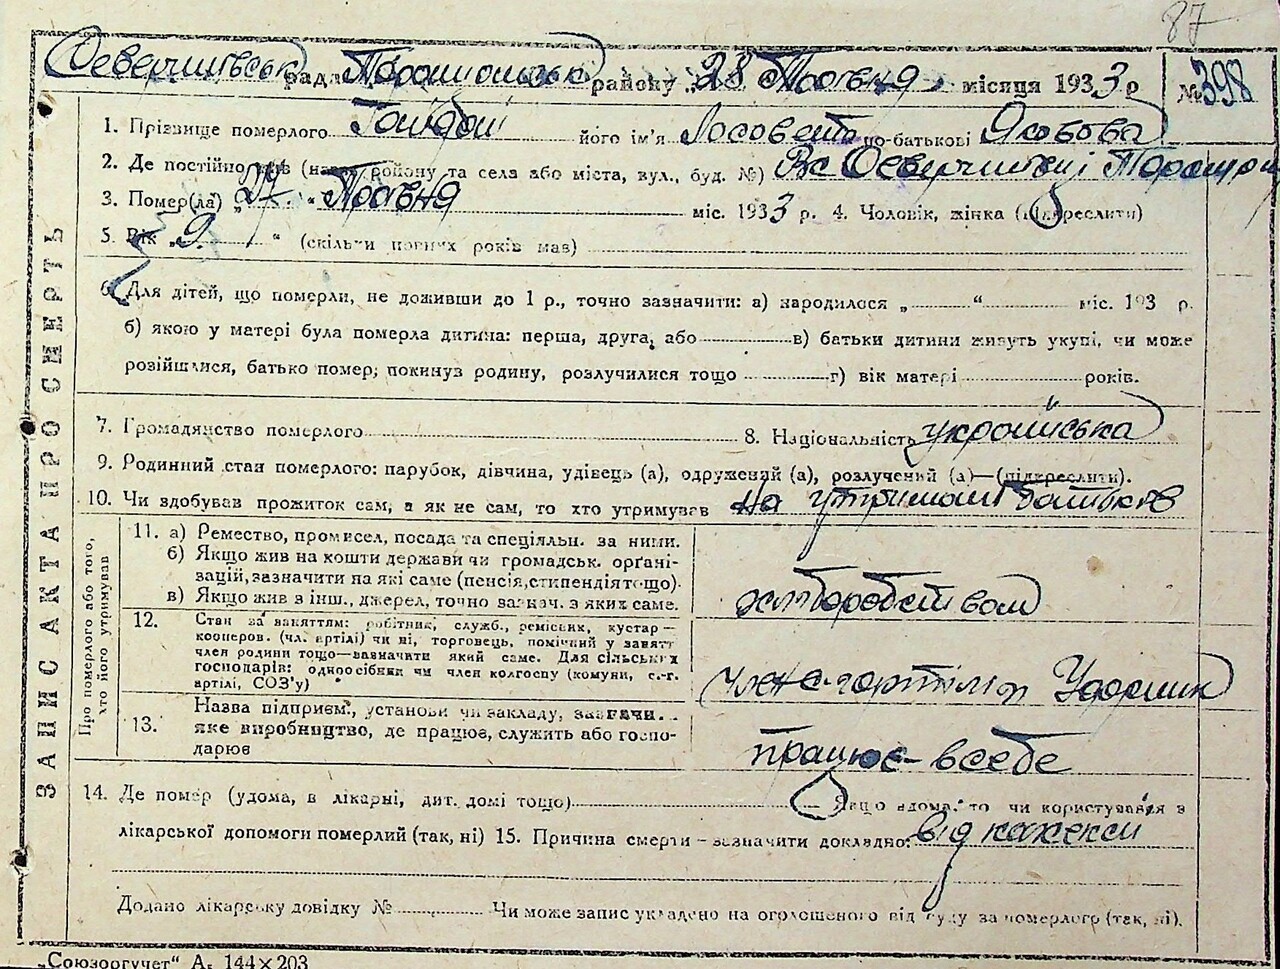 87
рада району „28 Травня“ місяця 1933 р № 398
1. Прізвище померлого його ім'я по-батькові Якобова
2. Де постійно жив (назва району та села або міста, вул., буд. №)
3. Помер(ла) „27.“ Травня міс. 1933 р. 4. Чоловік, жінка (підкреслити)
5. Вік „9.“ (скільки повних років мав)
6. Для дітей, що померли, не доживши до 1 р., точно зазначити: а) народилося „ “ міс. 193 р.
б) якою у матері була померла дитина: перша, друга, або в) батьки дитини живуть укупі, чи може
розійшлися, батько помер; покинув родину, розлучилися тощо г) вік матері років.
7. Громадянство померлого 8. Національність українська
9. Родинний стан померлого: парубок, дівчина, удівець (а), одружений (а), розлучений (а)—(підкреслити).
10. Чи здобував прожиток сам, а як не сам, то хто утримував на утримані батьків
ЗАПИСКА ПРО СМЕРТЬ
Про померлого або того,
хто його утримував
11. а) Ремество, промисел, посада та спеціяльн. за ними.
б) Якщо жив на кошти держави чи громадськ. орґані-
зацій, зазначити на які саме (пенсія, стипендія тощо).
в) Якщо жив з інш., джерел, точно зазнач. з яких саме.
хліборобством
12. Стан за заняттям: робітник, служб., ремісник, кустар—
кооперов. (чл. артілі) чи ні, торговець, помічний у занятт
член родини тощо—зазначити який саме. Для сільських
господарів: одноосібник чи член колгоспу (комуни, с.-г.
артілі, СОЗ'у)
Ударник
13. Назва підприєм., установи чи закладу, зазначи..
яке виробництво, де працює, служить або госпо-
дарює
працює в себе
14. Де помер (удома, в лікарні, дит. домі тощо) — Якщо вдома, то чи користувався з
лікарської допомоги померлий (так, ні) 15. Причина смерти—зазначити докладно: від кахексии
Додано лікарську довідку № Чи може запис укладено на оголошеного від суду за померлого (так, ні).
„Союзоргучет“ А₅ 144×203